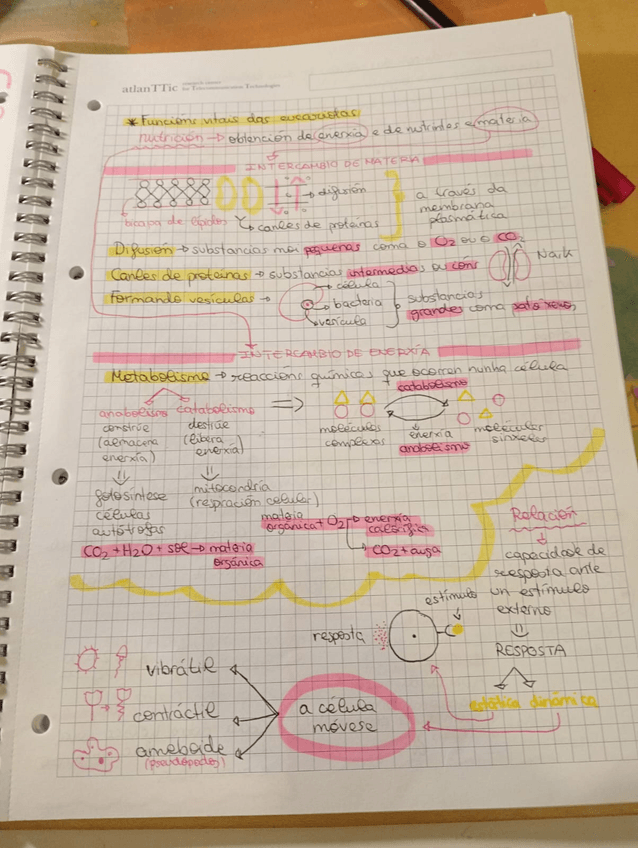 atlanTTic
* Funcións vitais das eucariotas
nutrición → obtención de enerxía e de nutrintes e materia
INTERCAMBIO DE MATERIA
difusión
bicapa de lípidos
canles de proteínas
a través da
membrana
plasmática
Difusión → substancias moi pequenas coma o O2 ou o CO2
Canles de proteínas → substancias intermedias ou ións
Na+ K+
Formando vesículas →
célula
bacteria
vesícula
substancias
grandes coma
INTERCAMBIO DE ENERXÍA
Metabolismo → reaccións químicas que ocorren nunha célula
anabolismo catabolismo
constrúe
(almacena
enerxía)
destrúe
(libera
enerxía)
catabolismo
moléculas
complexas
enerxía
anabolismo
moléculas
sinxelas
fotosíntese
células
autótrofas
mitocondria
(respiración celular)
materia
orgánica + O2 → enerxía
calorífica
CO2 + auga
CO2 + H2O + sol → materia
orgánica
Relación
capacidade de
resposta ante
un estímulo
externo
RESPOSTA
estática dinámica
estímulo
resposta
a célula
móvese
vibrátil
contráctil
ameboide
(pseudópodos)